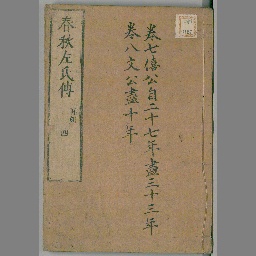 卷七僖公自二十七年盡三十三年
卷八文公盡十年
春秋左氏傳
四